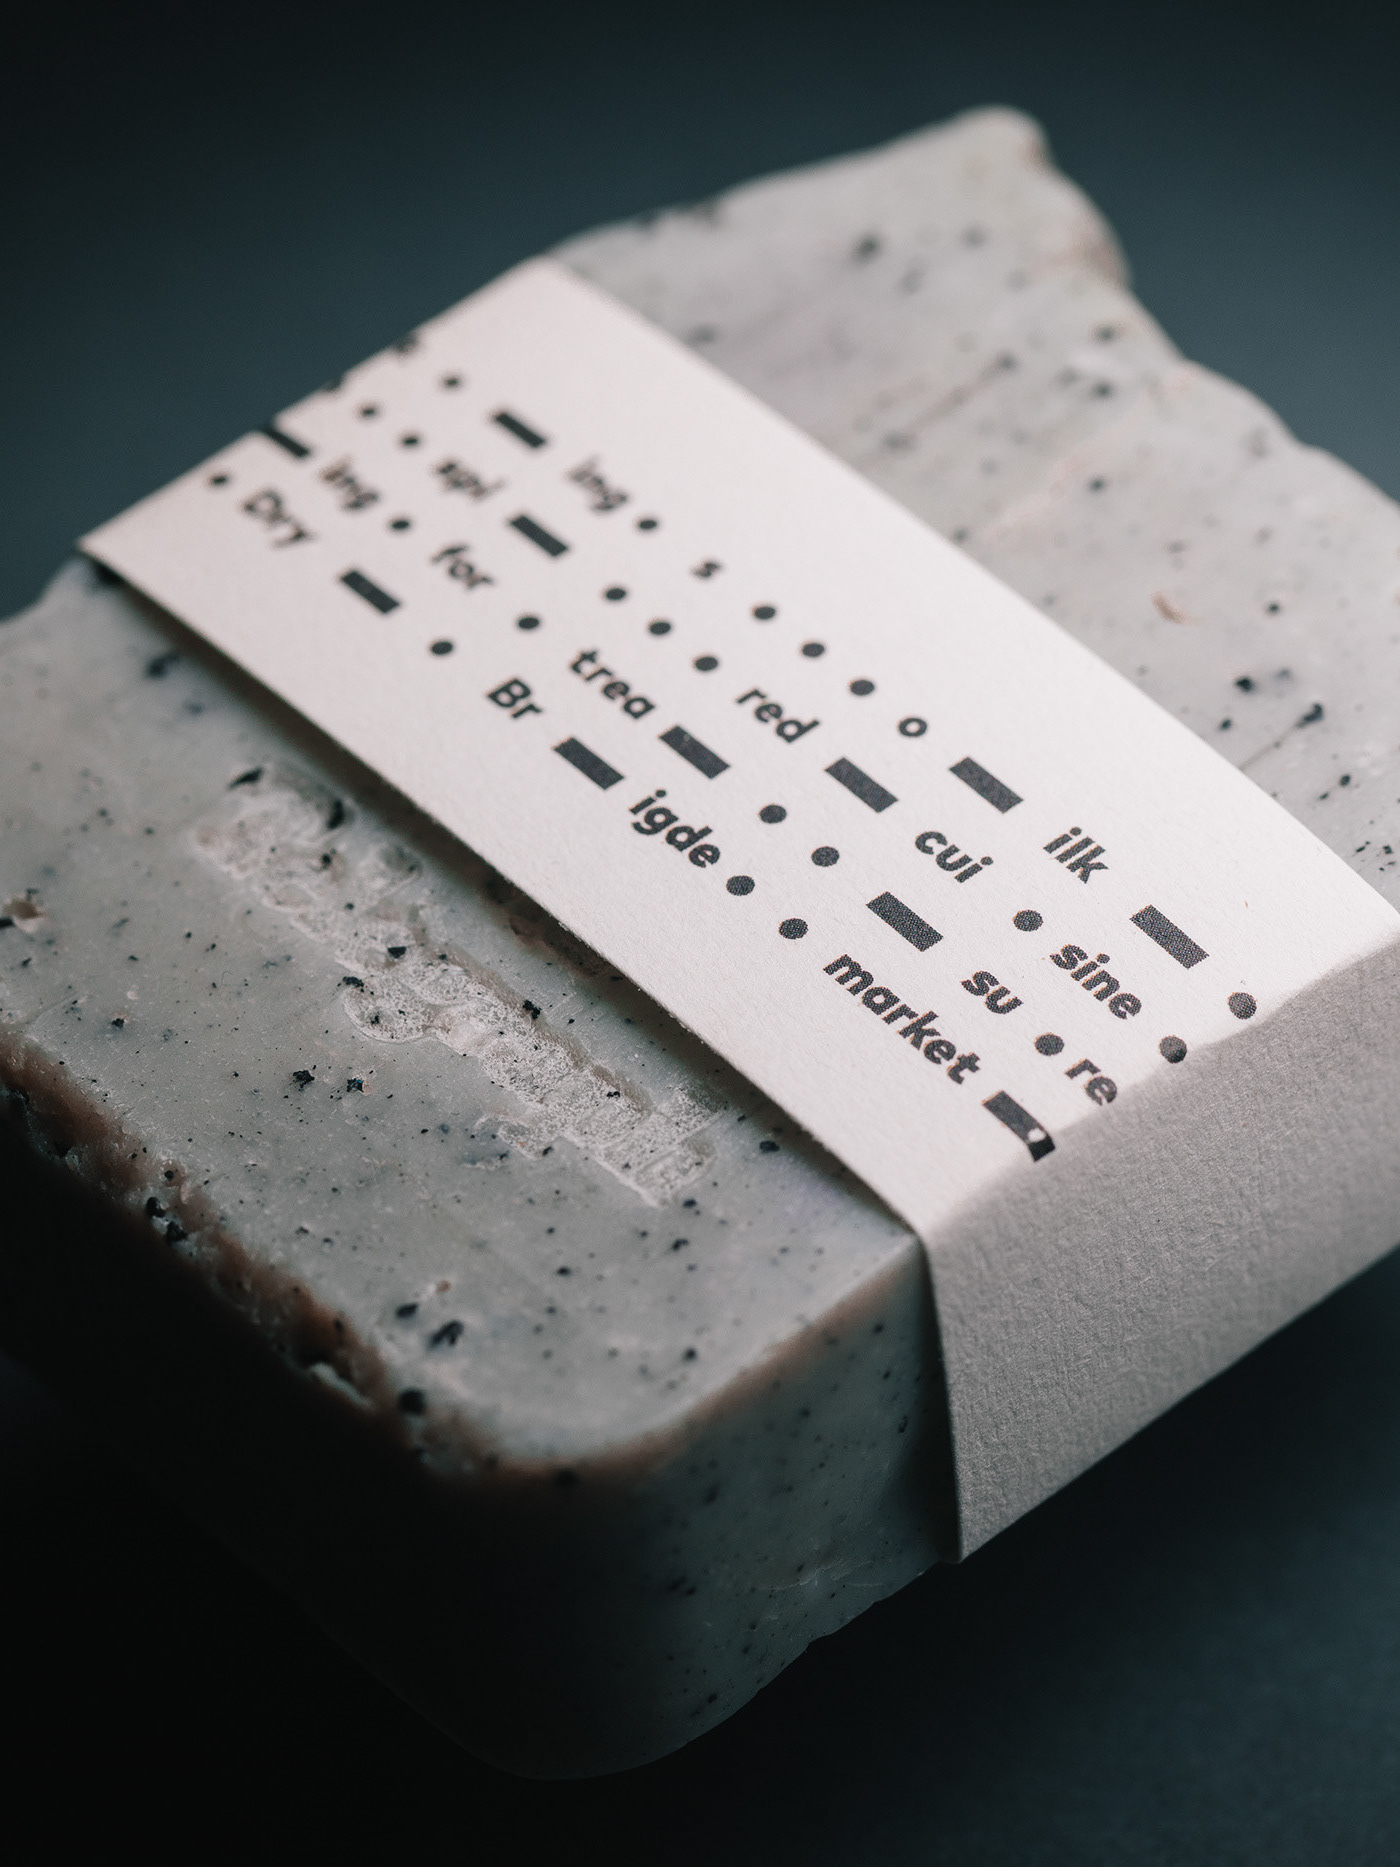 ing s o ilk
spi red cui sine
ing for trea su re
Dry Br igde market